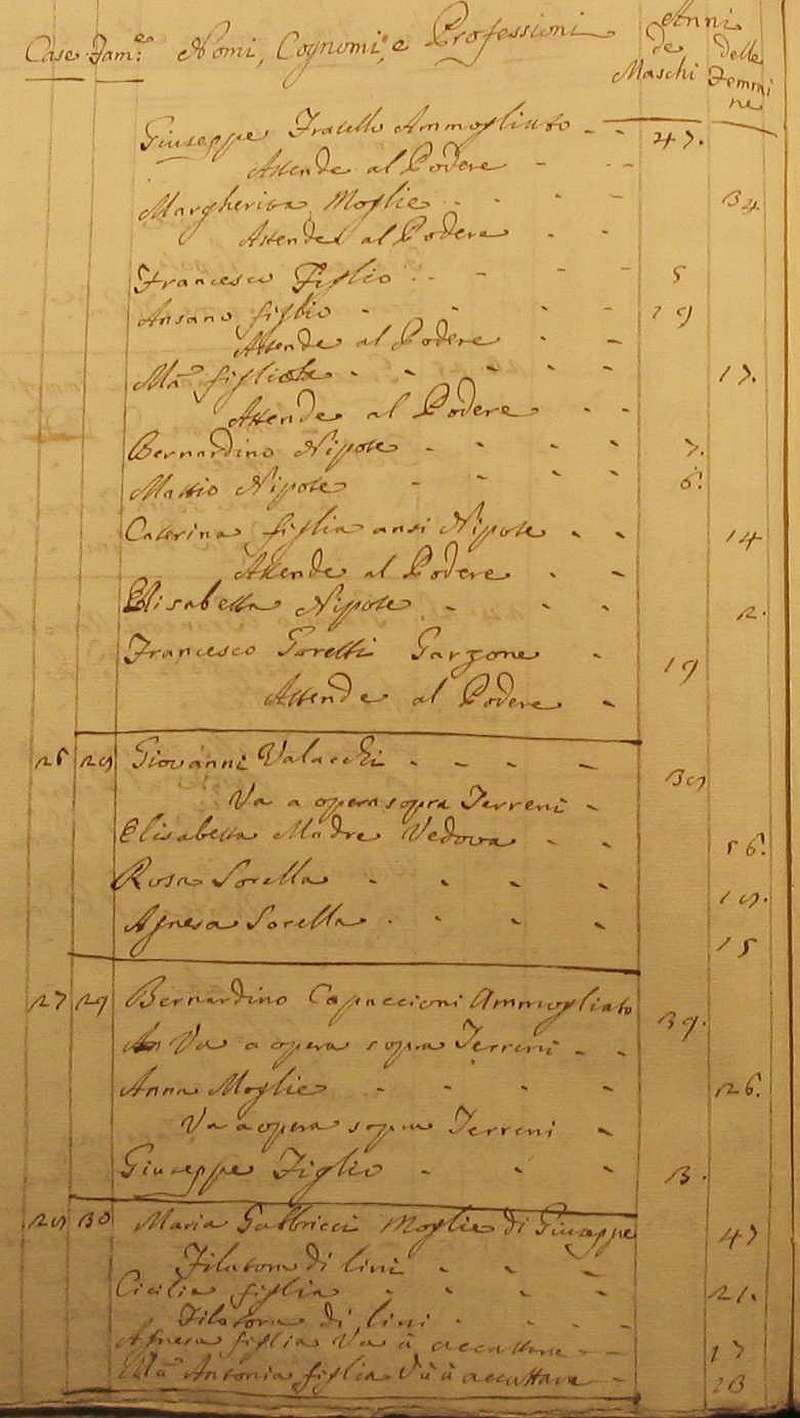 Case Fam.e Nomi, Cognomi, e Professioni Anni
de Maschi delle Femmine
Giuseppe Fratello Ammogliato - - 47.
Attende al Podere - - -
Margherita Moglie - - - - 34
Attende al Podere - -
Francesco Figlio - - - - 5
Ansano figlio - - - - 19
Attende al Podere - -
Ma. figliola - - - - - 17.
Attende al Podere - -
Bernardino Nipote - - - - 7.
Mattio Nipote - - - - 6.
Caterina figlia ansi Nipote - - 14
Attende al Podere - -
Elisabetta Nipote - - - 2.
Francesco Garzone - 19
Attende al Podere -
29 Giovanni Valacchi - - - -
Va a opera sopra Terreni -
Elisabetta Madre Vedova - - 56.
Rosa Sorella - - - - 19.
Agnesa Sorella - - - - 15
27 29 Bernardino Capaccioni Ammogliato 39.
Va a opera sopra Terreni - -
Anna Moglie - - - - 26.
Va a opera sopra Terreni -
Giuseppe Figlio - - - 3.
30 Maria Gabbricci Moglie di Giuseppe 47
Filatora di lini - - -
Cicilia figlia - - - - 21.
Filatora di lini - - - -
Agnesa figlia Va à accattare - - 17
Ma. Antonia figlia Và à accattare - 13